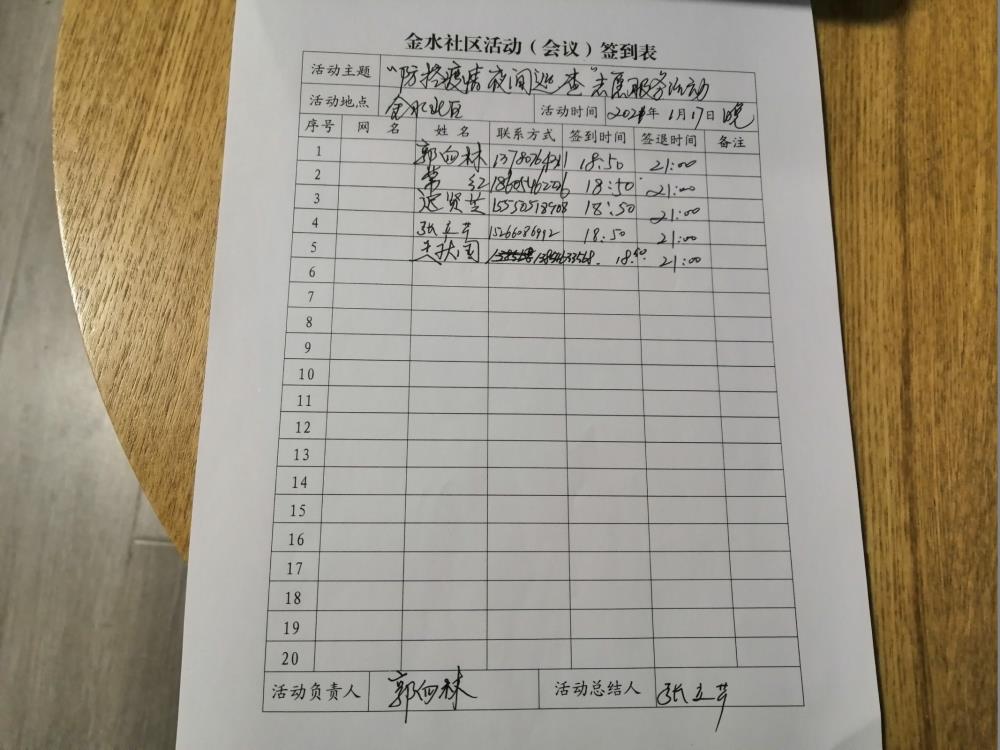 金水社区活动（会议）签到表
活动主题 "防控疫情夜间巡查"志愿服务活动
活动地点 金水社区 活动时间 2021年1月17日晚
序号 网名 姓名 联系方式 签到时间 签退时间 备注
1 郭向林 18:50 21:00
2 常红 18:50 21:00
3 迟贤芝 15550518908 18:50 21:00
4 张立芹 15266086992 18:50 21:00
5 18:50 21:00
6
7
8
9
10
11
12
13
14
15
16
17
18
19
20
活动负责人 郭向林 活动总结人 张立芹